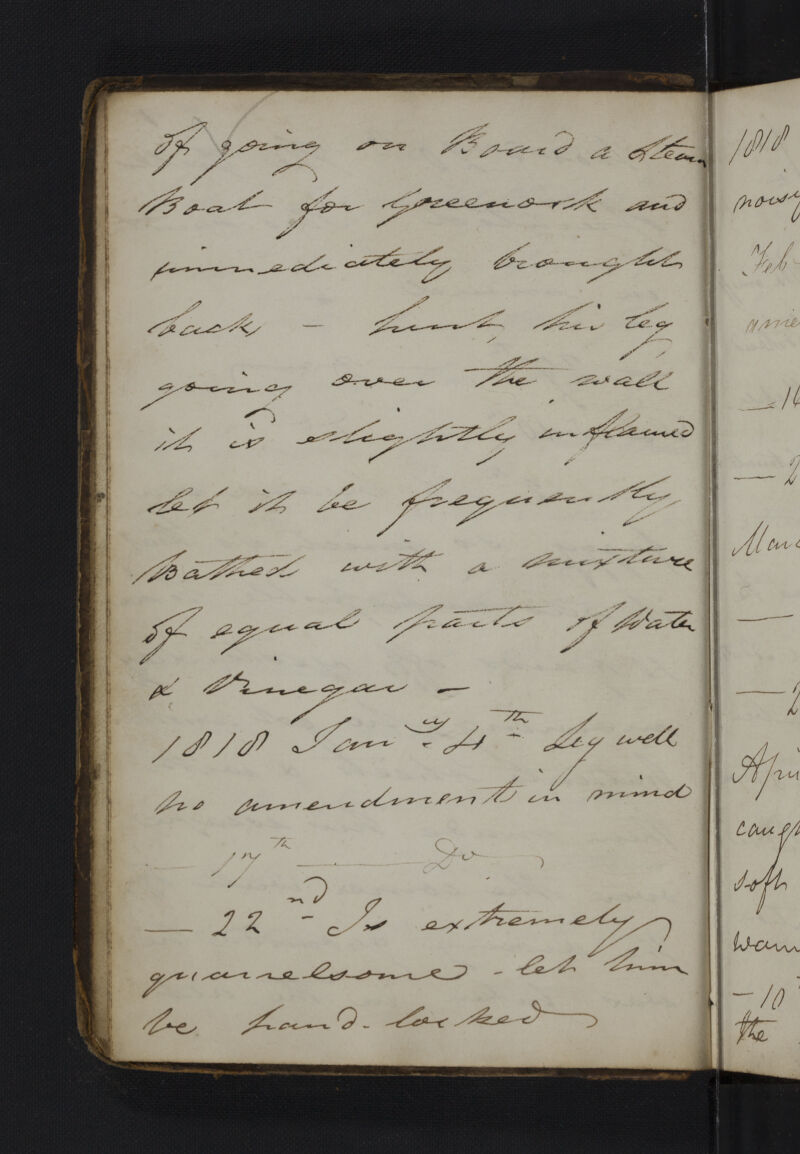 of going on Board a Steam
Boat for Greenock and
immediately brought
back, - hurt, his leg,
going over the wall
it is slightly inflamed
let it be frequently
Bathed with a mixture
of equal parts of Water
& Vinegar -
1818 Jany 4th Leg well
no amendment in mind
- 17th - Do
- 22nd Is extremely
quarrelsome - let him
be hand-locked
1818
Feb
- 2
soft
- 10
the